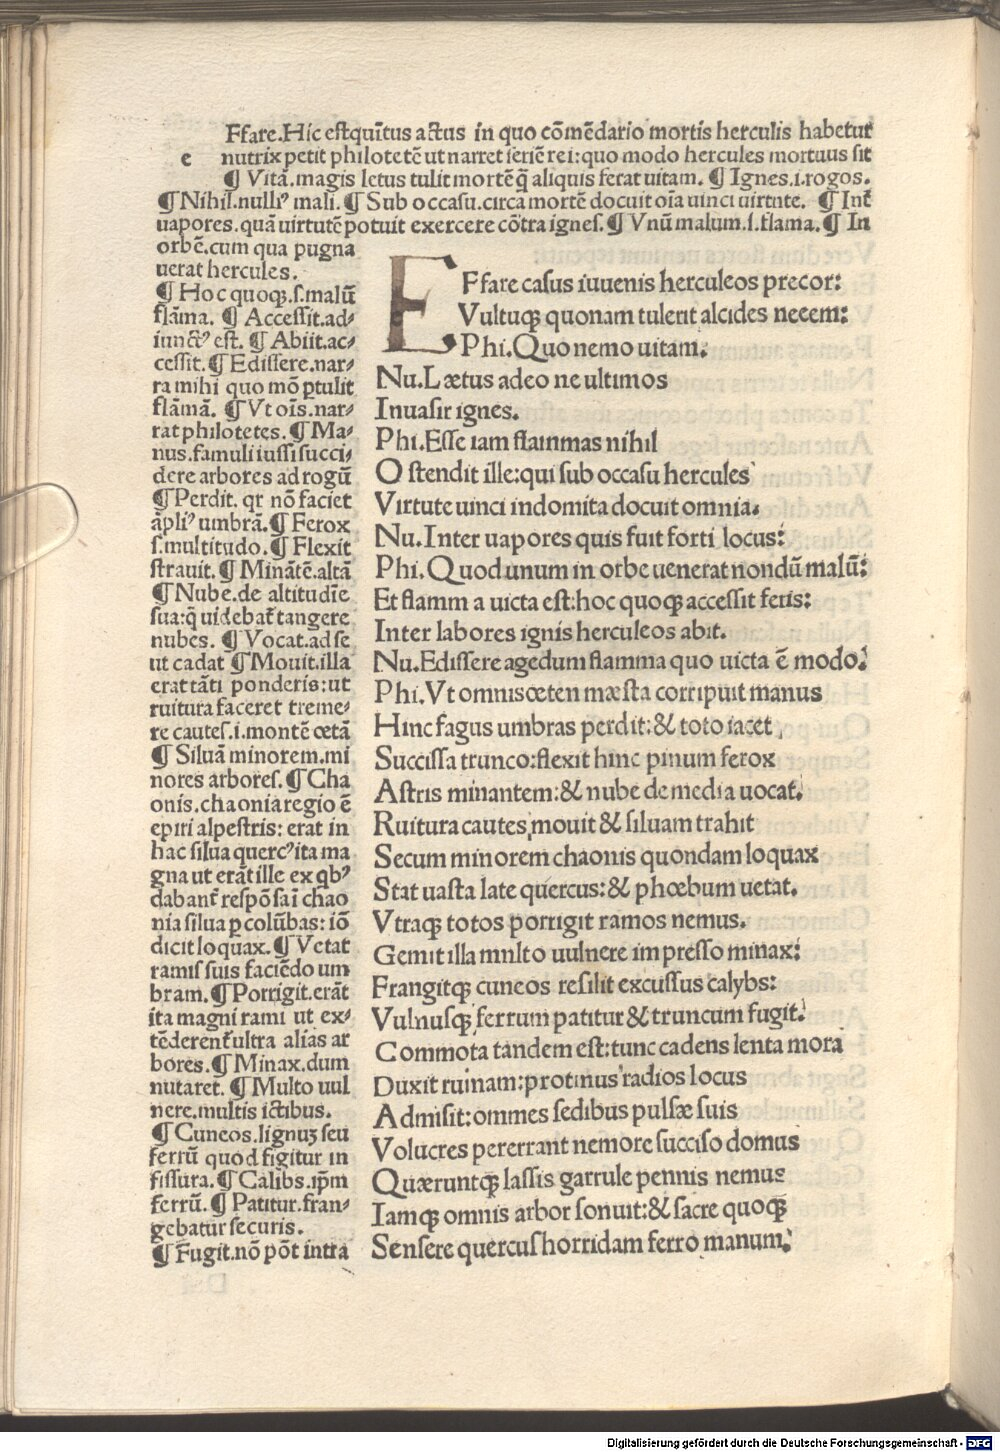 Ffare.Hic estqui̅tus actus in quo co̅me̅dario mortis herculis habetur
e nutrix petit philotete̅ ut narret ſerie̅ rei:quo modo hercules mortuus ſit
¶ Vita̅.magis letus tulit morte̅ q̅ aliquis ferat uitam. ¶ Ignes.i.rogos.
¶ Nihil.nulliꝰ mali. ¶ Sub occaſu.circa morte̅ docuit oi̅a uinci uirtute. ¶ Int̅
uapores.qua̅ uirtute̅ potuit exercere co̅tra igneſ. ¶ Vnu̅ malum.ſ.flama. ¶ In
orbe̅.cum qua pugna
uerat hercules.
¶ Hoc quoqꝫ.ſ.malu̅
fla̅ma. ¶ Acceſſit.ad⸗
iunctꝰ eſt. ¶ Abiit.ac⸗
ceſſit. ¶ Ediſſere.nar⸗
ra mihi quo mo̅ ꝑtulit
fla̅ma̅. ¶ Vt oi̅s.nar⸗
rat philotetes. ¶ Ma⸗
nus.famuli iuſſi ſucci⸗
dere arbores ad rogu̅
¶ Perdit. qr no̅ faciet
a̅pliꝰ umbra̅. ¶ Ferox
ſ.multitudo. ¶ Flexit
ſtrauit. ¶ Mina̅te̅.alta̅
¶ Nube.de altitudi̅e
ſua:q̅ uidebat̅ tangere
nubes. ¶ Vocat.ad ſe
ut cadat ¶ Mouit.illa
erat ta̅ti ponderis:ut
ruitura faceret treme⸗
re cauteſ.i.monte̅ œta̅
¶ Silua̅ minorem.mi
nores arboreſ. ¶ Cha
onis.chaonia regio e̅
epiri alpeſtris: erat in
hac ſilua quercꝰ ita ma
gna ut era̅t ille ex qbꝰ
dabant̅ reſpo̅ſa i̅ chao
nia ſilua ꝑ colu̅bas: io̅
dicit loquax. ¶ Vetat
ramiſ ſuis facie̅do um
bram. ¶ Porrigit.era̅t
ita magni rami ut ex⸗
te̅derent̅ ultra alias ar
bores. ¶ Minax.dum
nutaret. ¶ Multo uul
nere.multis ictibus.
¶ Cuneos.lignuꝫ ſeu
ferru̅ quod figitur in
fiſſura. ¶ Calibs.ip̅m
ferru̅. ¶ Patitur.fran⸗
gebatur ſecuris.
¶ Fugit.no̅ po̅t intra
EFfare caſus iuuenis herculeos precor:
Vultuqꝫ quonam tulerit alcides necem:
Phi.Quo nemo uitam.
Nu.Lætus adeo ne ultimos
Inuaſit ignes.
Phi.Eſſe iam flammas nihil
Oſtendit ille:qui ſub occaſu hercules
Virtute uinci indomita docuit omnia.
Nu.Inter uapores quis fuit forti locus:
Phi.Quod unum in orbe uenerat nondu̅ malu̅:
Et flamm a uicta eſt:hoc quoqꝫ acceſſit feris:
Inter labores ignis herculeos abit.
Nu.Ediſſere agedum flamma quo uicta e̅ modo.
Phi.Vt omnis œten mæſta corripuit manus
Hinc fagus umbras perdit:& toto iacet
Succiſſa trunco:flexit hinc pinum ferox
Aſtris minantem:& nube de media uocat.
Ruitura cautes mouit & ſiluam trahit
Secum minorem chaonis quondam loquax
Stat uaſta late quercus:& phœbum uetat.
Vtraqꝫ totos porrigit ramos nemus.
Gemit illa mnlto uulnere im preſſo minax:
Frangitqꝫ cuneos reſilit excuſſus calybs:
Vulnuſqꝫ ferrum patitur & truncum fugit.
Commota tandem eſt:tunc cadens lenta mora
Duxit ruinam:protinus radios locus
Admiſit:ommes ſedibus pulſæ ſuis
Volucres pererrant nemore ſucciſo domus
Quæruntqꝫ laſſis garrule pennis nemus
Iamqꝫ omnis arbor ſonuit:& ſacre quoqꝫ
Senſere quercuſ horridam ferro manum.
Digitalisierung gefördert durch die Deutsche Forschungsgemeinschaft - DFG